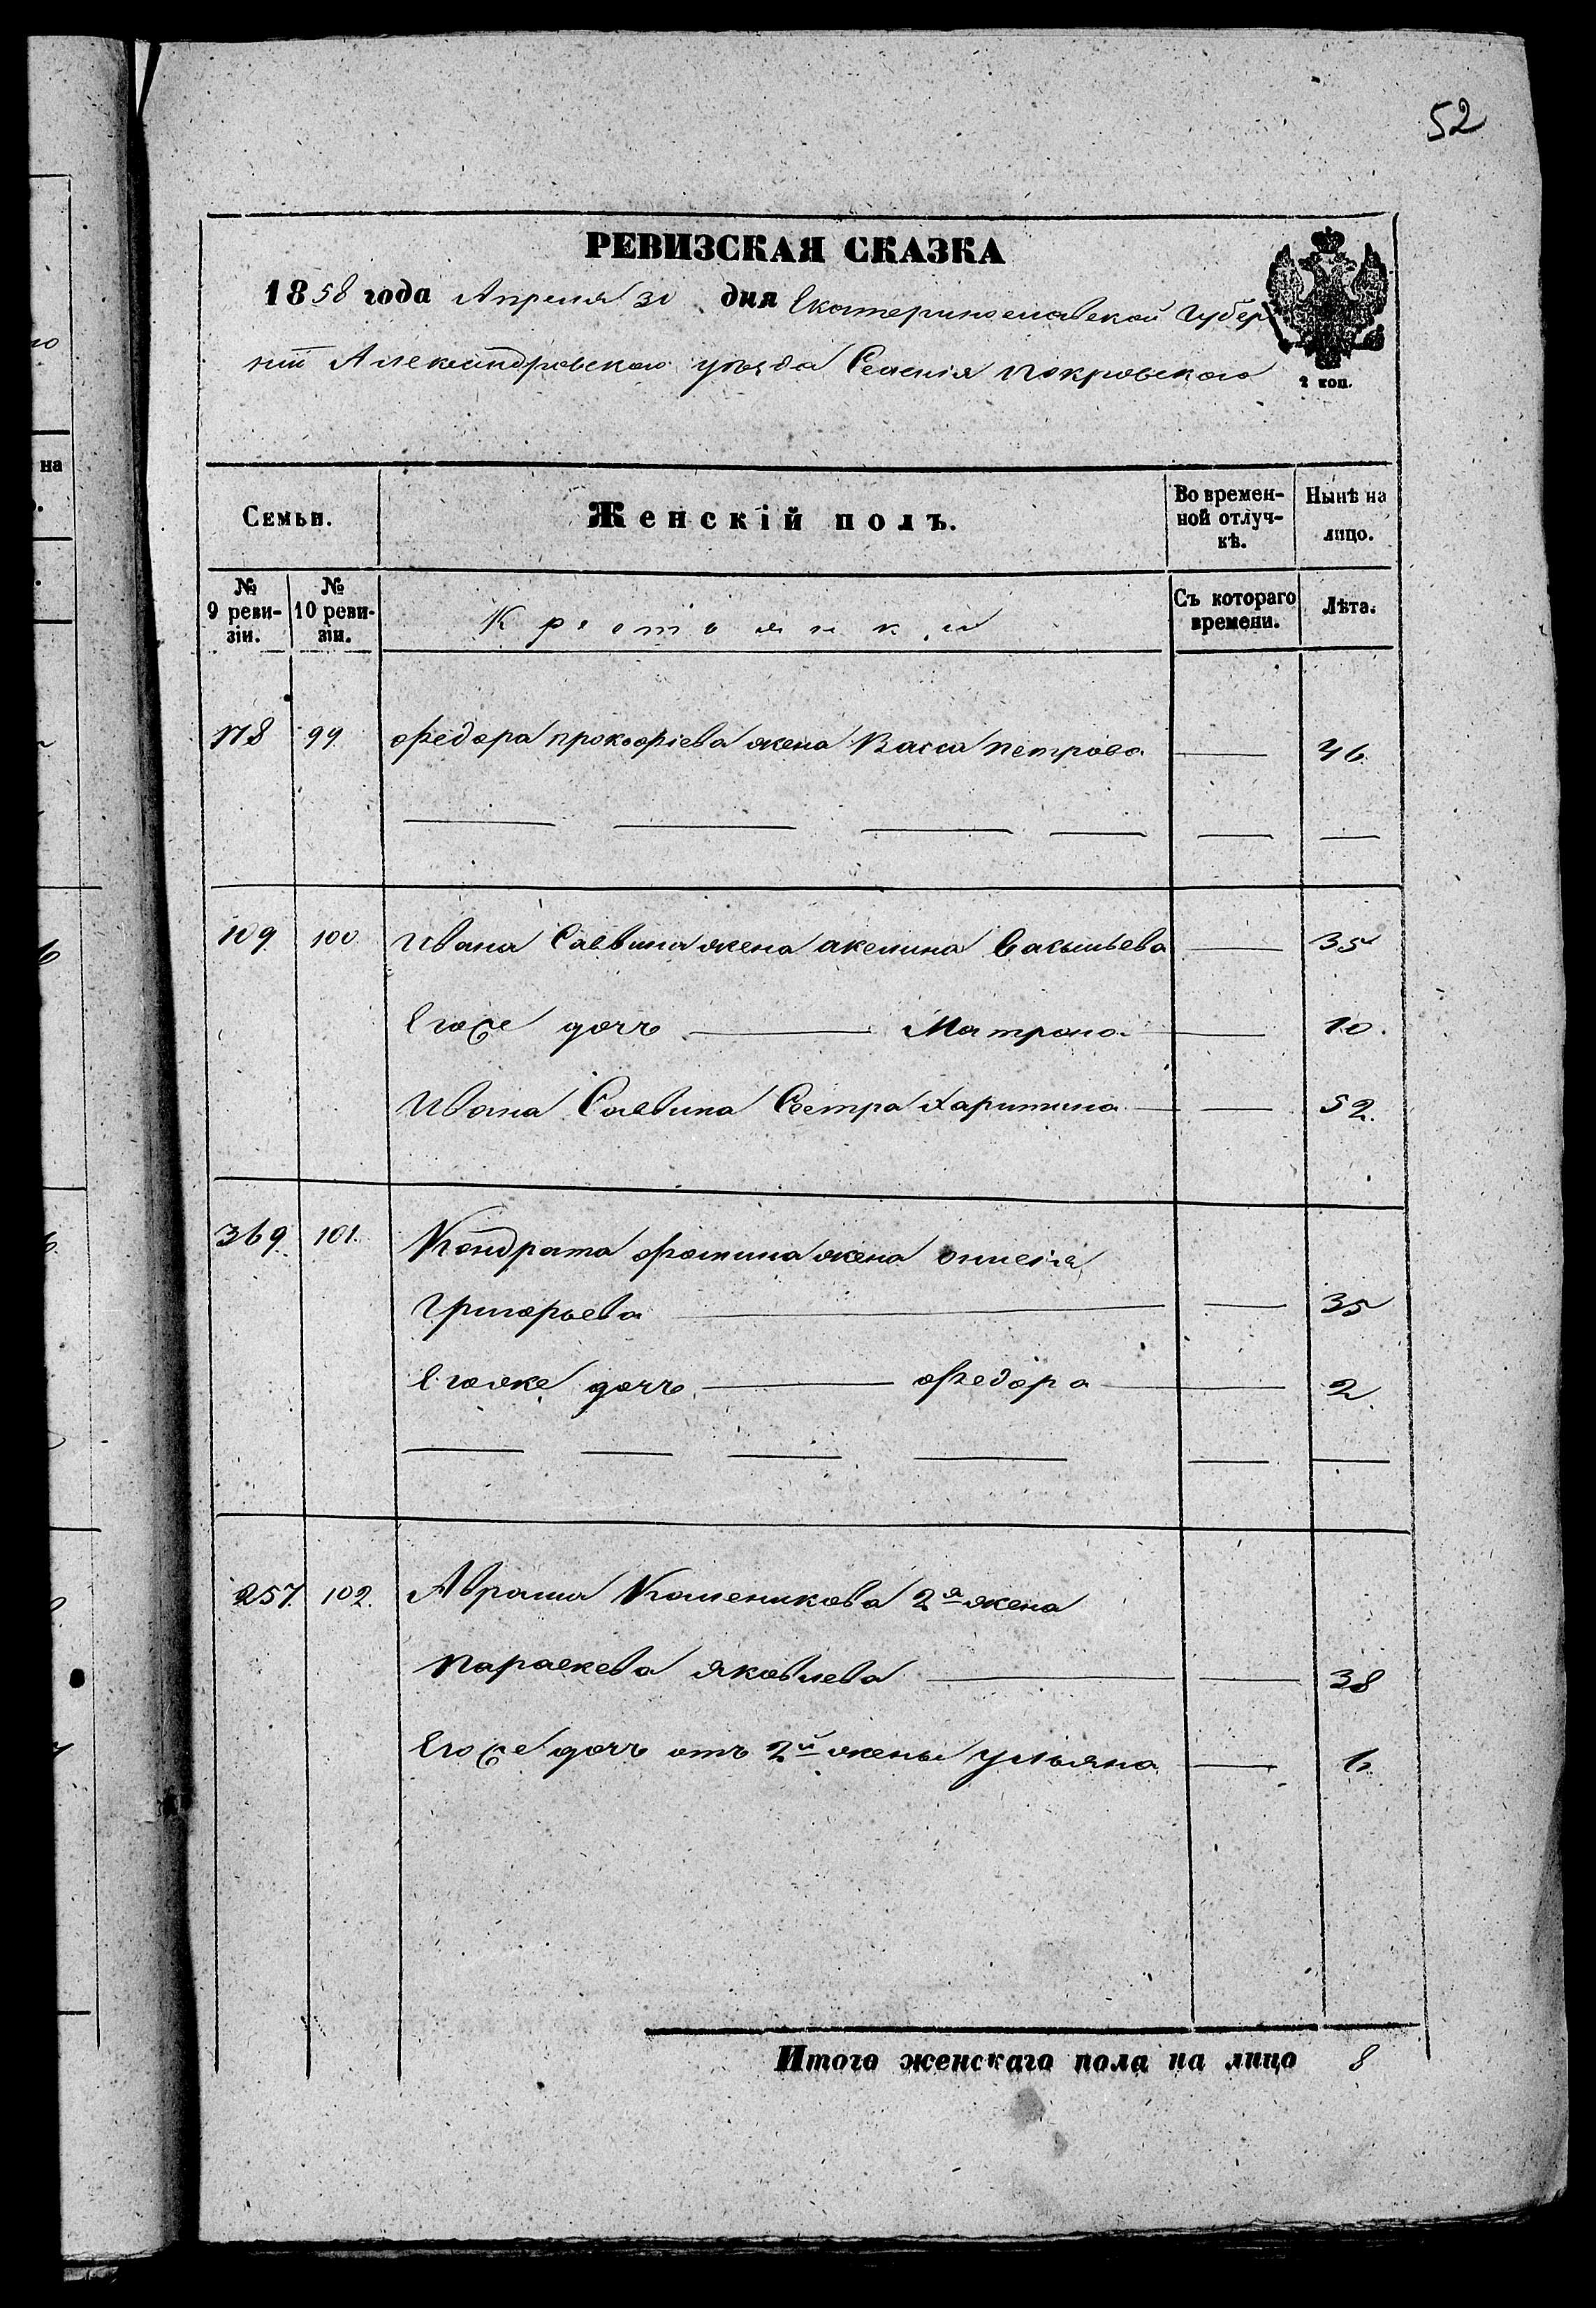 52
РЕВИЗСКАЯ СКАЗКА
1858 года Апреля 30 дня Екатеринославской Губер
нiи Александровского уѣзда Селенiя Покровского
2 коп.
Семьи. Женскiй полъ. Во времен-ной отлуч-кѣ. Нынѣ на лицо.
№ 9 реви-зiи. № 10 реви-зiи. Крестьянки Съ котораго времени. Лѣта.
178 99 Федора Прокофiева жена Васса Петрова — 46
109 100 Ивана Саевина жена Акелина Васильева — 35
Егоже дочь — Матрона — 10.
Ивана Саевина Сестра Харитина — 52.
369. 101. Кондрата Фомина жена
Григорьева — 35
Егоже дочь — Федора — 2.
257. 102. Абрама Каменикова 2я жена
Параскева Яковлева — 38
Егоже дочь отъ 2й жены Ульяна — 6.
Итого женскаго пола на лицо 8
на